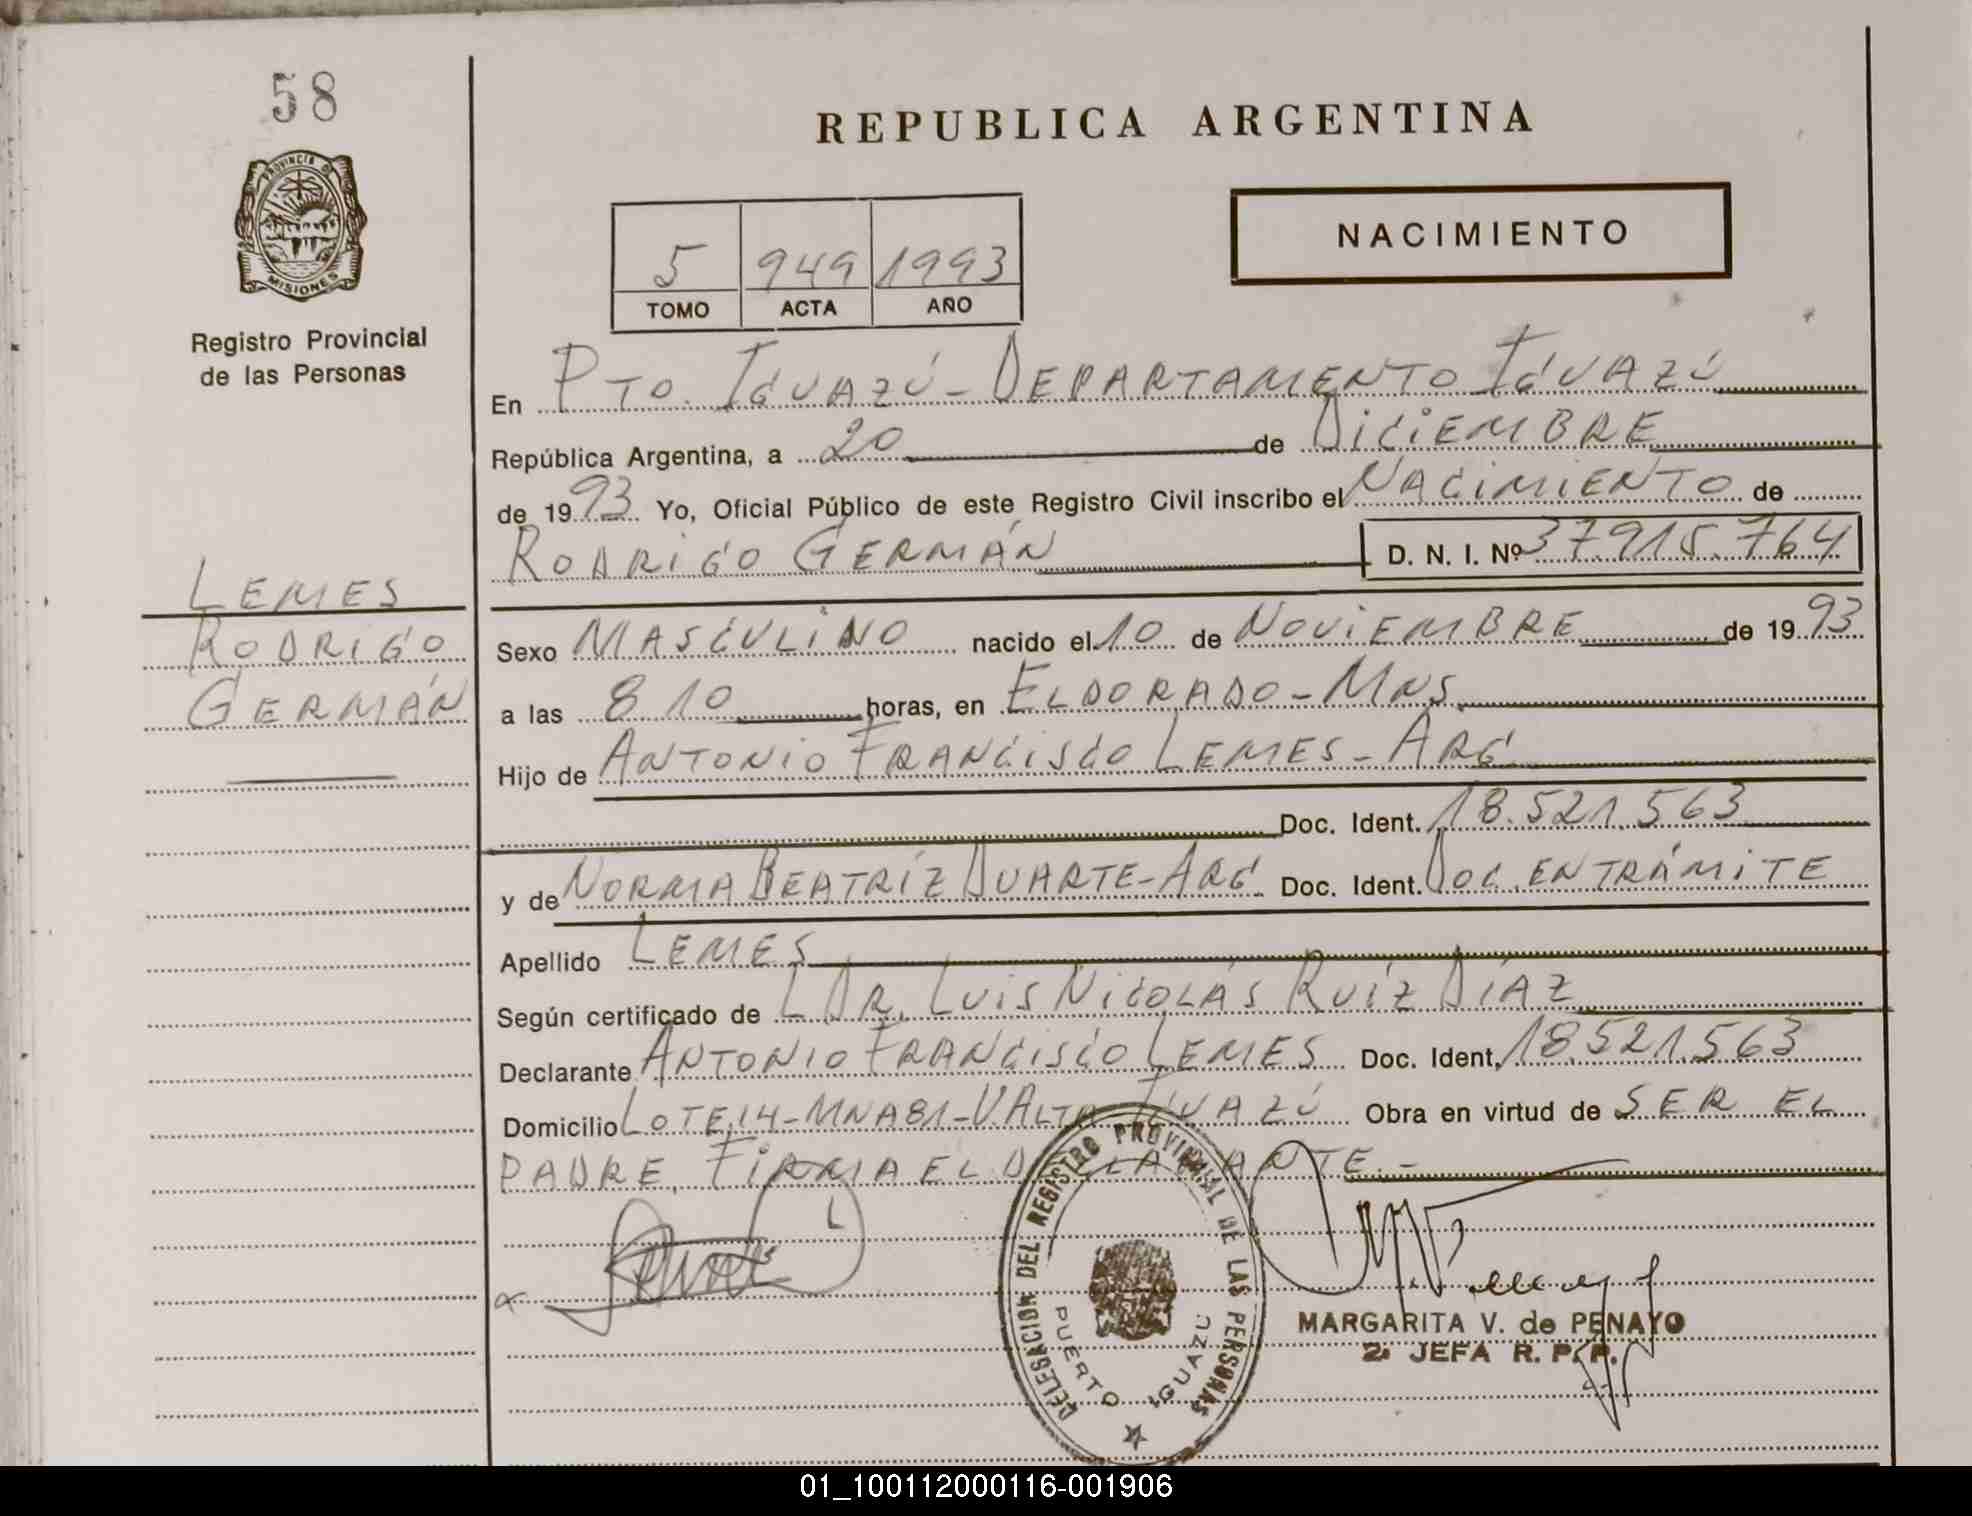 58
REPUBLICA ARGENTINA
PROVINCIA DE
MISIONES
Registro Provincial
de las Personas
NACIMIENTO
5 949 1993
TOMO ACTA AÑO
En PTO. IGUAZÚ - DEPARTAMENTO IGUAZÚ
República Argentina, a 20 de DICIEMBRE
de 1993 Yo, Oficial Público de este Registro Civil inscribo el NACIMIENTO de
RODRIGO GERMÁN D. N. I. Nº 37.915.764
LEMES
RODRIGO
GERMÁN
Sexo MASCULINO nacido el 10 de NOVIEMBRE de 1993
a las 8 10 horas, en ELDORADO - MNS.
Hijo de ANTONIO FRANCISCO LEMES - ARG
Doc. Ident. 18.521.563
y de NORMA BEATRÍZ DUARTE - ARG. Doc. Ident. DOC. EN TRÁMITE
Apellido LEMES
Según certificado de L DR. LUIS NICOLÁS RUÍZ DÍAZ
Declarante ANTONIO FRANCISCO LEMES Doc. Ident. 18.521.563
Domicilio LOTE 14 - MNA 81 - V. ALTA IGUAZÚ Obra en virtud de SER EL
PADRE. FIRMA EL DECLARANTE. -
DELEGACION DEL REGISTRO PROVINCIAL DE LAS PERSONAS
PUERTO IGUAZU
MARGARITA V. de PENAYO
2ª JEFA R. P. P.
01_100112000116-001906